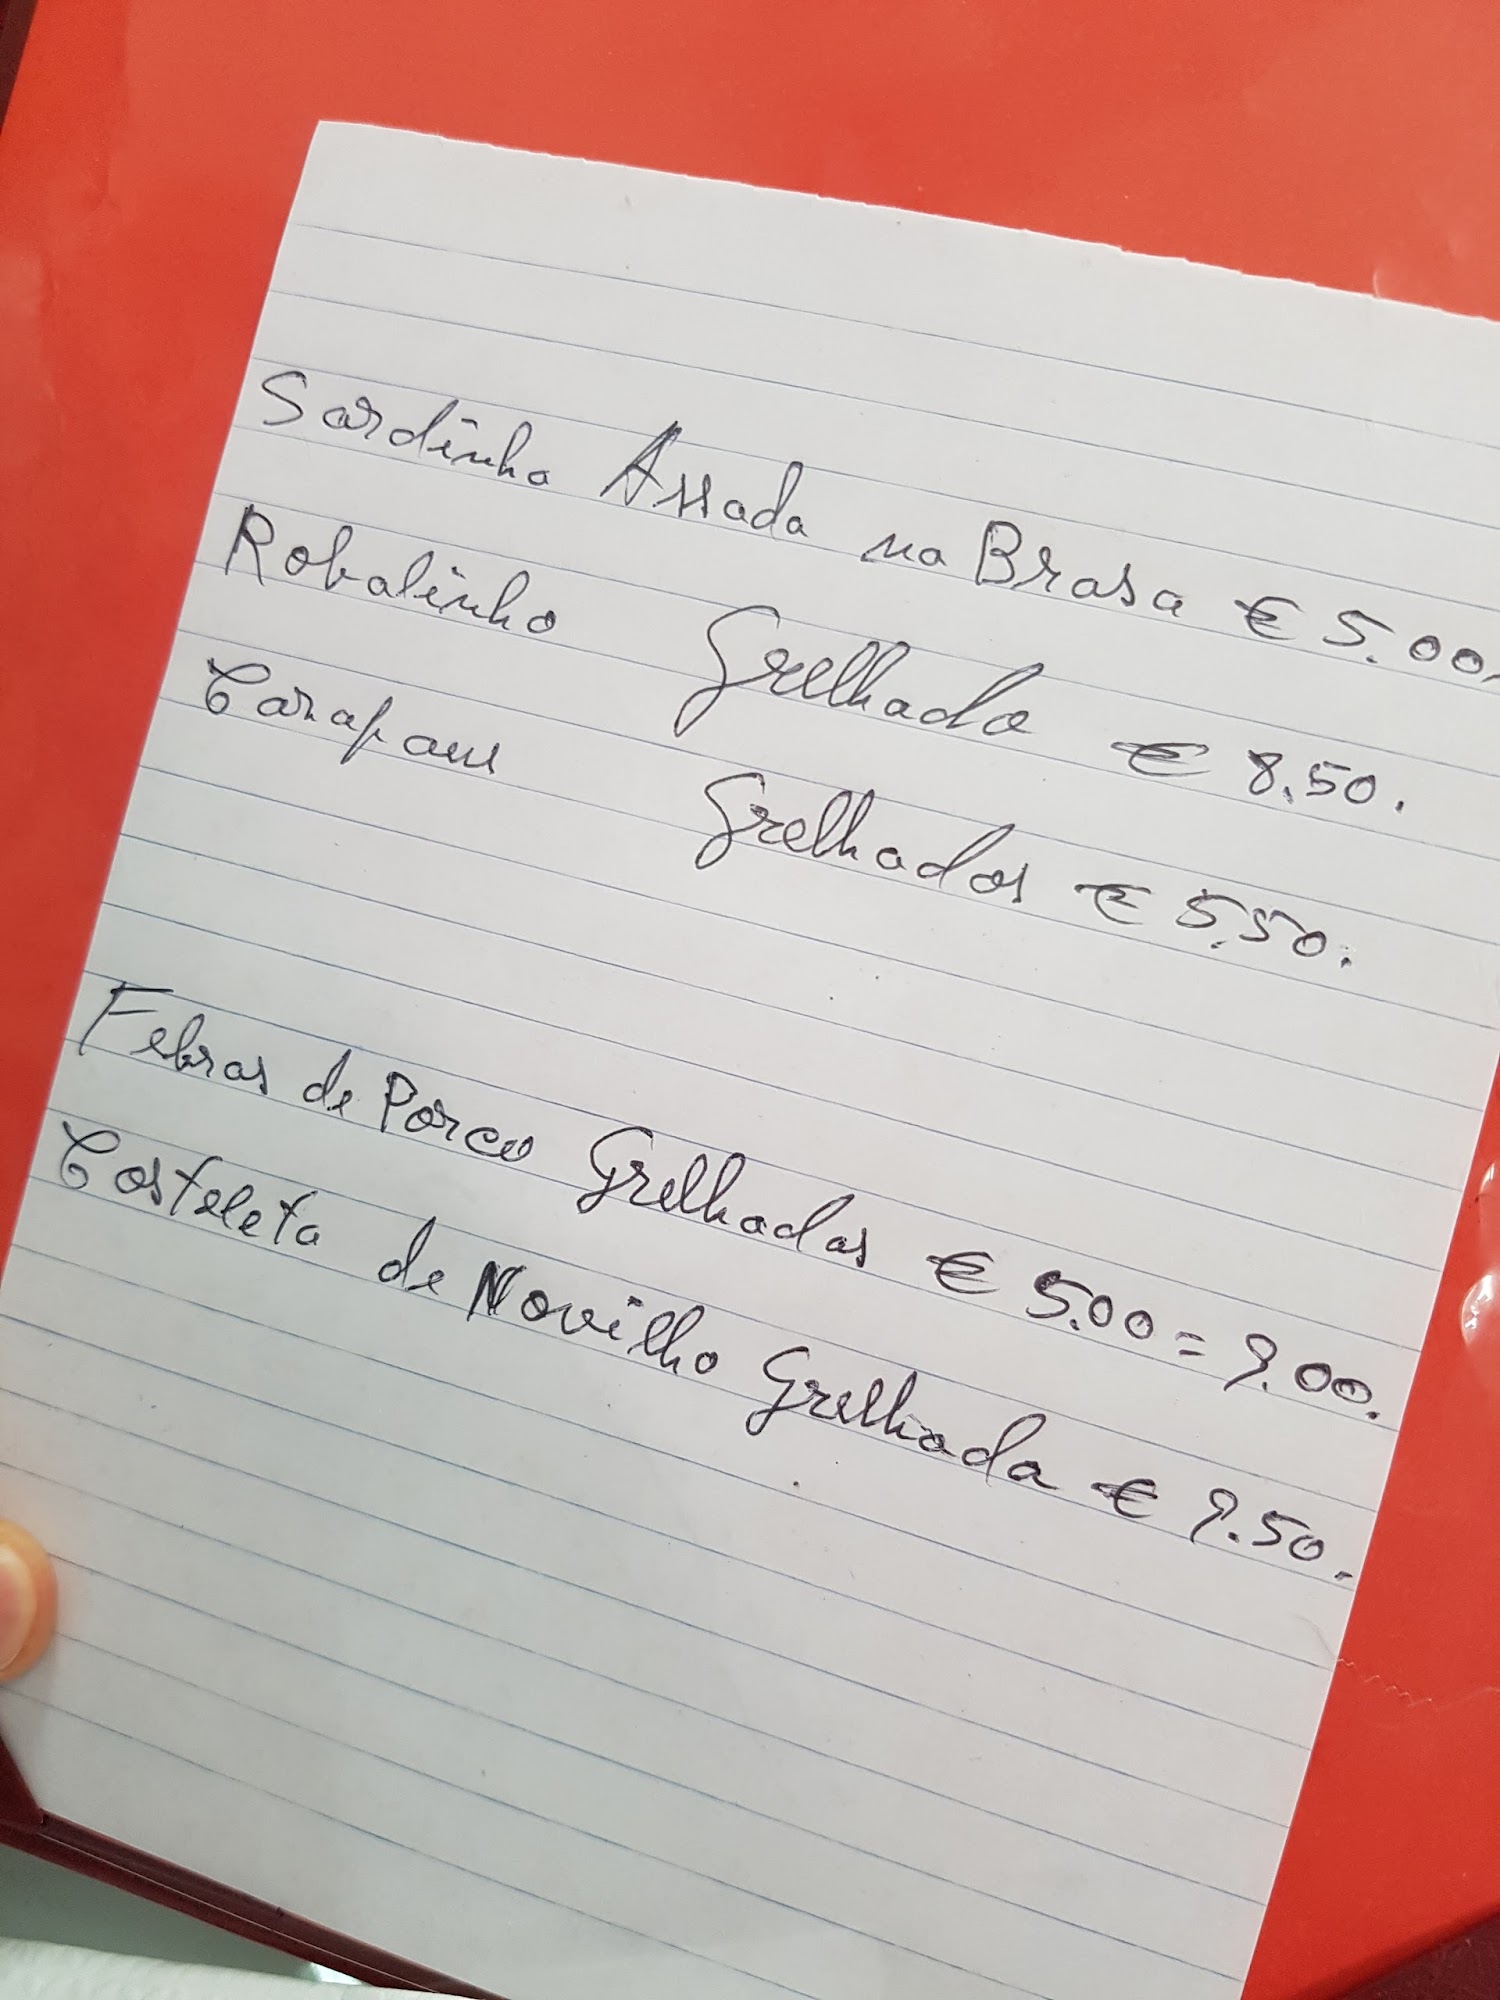 Sardinha Assada na Brasa € 5.00.
Robalinho Grelhado € 8.50.
Carapaus Grelhados € 5.50.
Febras de Porco Grelhadas € 5.00 = 9.00.
Costeleta de Novilho Grelhada € 9.50.